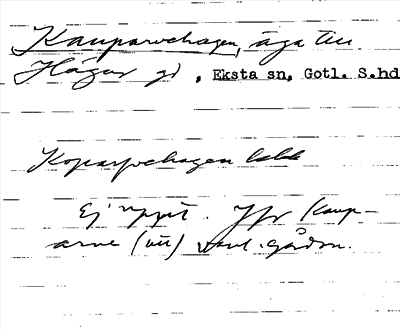 Kauparvehagen, äga till
Hägur gd, Eksta sn, Gotl. S.hd
Koparvehagen
Ej uppt. Jfr Kaup-
arve (itt) gårdsn.